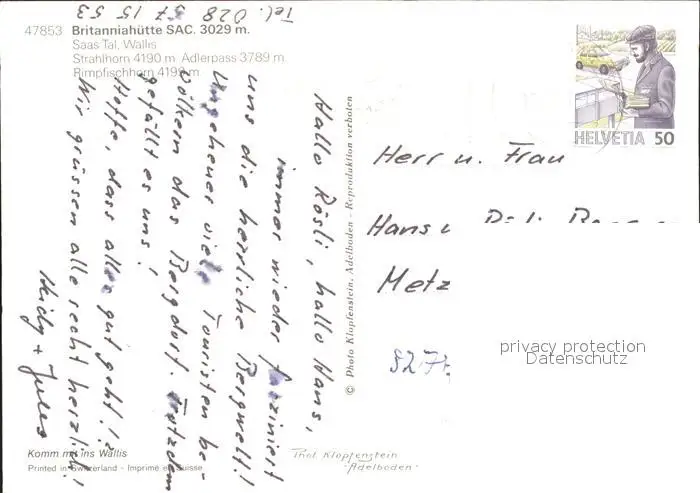 Tel. 028 57 15 53
47853 Britanniahütte SAC. 3029 m.
Saas Tal, Wallis
Strahlhorn 4190 m Adlerpass 3789 m
Rimpfischhorn 4199 m
Hallo Rösli, hallo Hans,
immer wieder fasziniert
uns die herrliche Bergwelt!
Ungeheuer viele Touristen be-
völkern das Bergdorf. Trotzdem
gefällt es uns!
Hoffe, dass alles gut geht!?
Wir grüssen alle recht herzlich!
Heidy + Jules
Komm mit ins Wallis
Printed in Switzerland - Imprimé en Suisse
© Photo Klopfenstein, Adelboden - Reproduktion verboten
Phot Klopfenstein
Adelboden
HELVETIA 50
Herr u. Frau
Hans u
Metz
privacy protection
Datenschutz